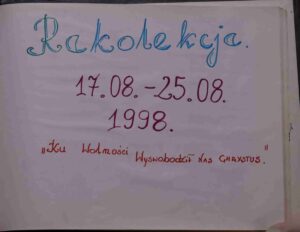 Rakolekcja.
17.08.-25.08.
1998.
„Ku Wolności Wyswobodził nas Chrystus."